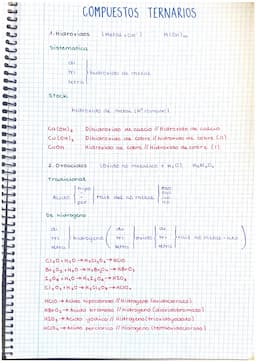 COMPUESTOS TERNARIOS
1. Hidróxidos (Metal + OH⁻) M(OH)ₘ
Sistemática
di
tri hidróxido de metal
tetra
Stock
Hidróxido de metal (Nº romano)
Ca(OH)₂ Dihidróxido de calcio // Hidróxido de calcio
Cu(OH)₂ Dihidróxido de cobre // Hidróxido de cobre (II)
CuOH Hidróxido de cobre // Hidróxido de cobre (I)
2. Oxoácidos (Óxido no metálico + H₂O)
Tradicional
Ácido hipo per raíz del no metal oso ico
De hidrógeno
di tri tetra hidrogeno di tri tetra óxido di tri tetra raíz no metal - ato
Cl₂O + H₂O → H₂Cl₂O₂ → HClO
Br₂O₃ + H₂O → H₂Br₂O₄ → HBrO₂
I₂O₅ + H₂O → H₂I₂O₆ → HIO₃
Cl₂O₇ + H₂O → H₂Cl₂O₈ → HClO₄
HClO → Ácido hipocloroso // Hidrogeno (oxidoclorato)
HBrO₂ → Ácido bromoso // Hidrogeno (dioxidobromato)
HIO₃ → Ácido yódico // Hidrogeno (trioxidoyodato)
HClO₄ → Ácido perclórico // Hidrogeno (tetraoxidoclorato)